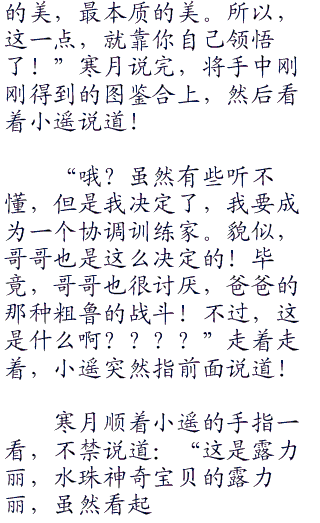 的美，最本质的美。所以，
这一点，就靠你自己领悟
了！”寒月说完，将手中刚
刚得到的图鉴合上，然后看
着小遥说道！
“哦？虽然有些听不
懂，但是我决定了，我要成
为一个协调训练家。貌似，
哥哥也是这么决定的！毕
竟，哥哥也很讨厌，爸爸的
那种粗鲁的战斗！不过，这
是什么啊？？？？”走着走
着，小遥突然指前面说道！
寒月顺着小遥的手指一
看，不禁说道：“这是露力
丽，水珠神奇宝贝的露力
丽，虽然看起